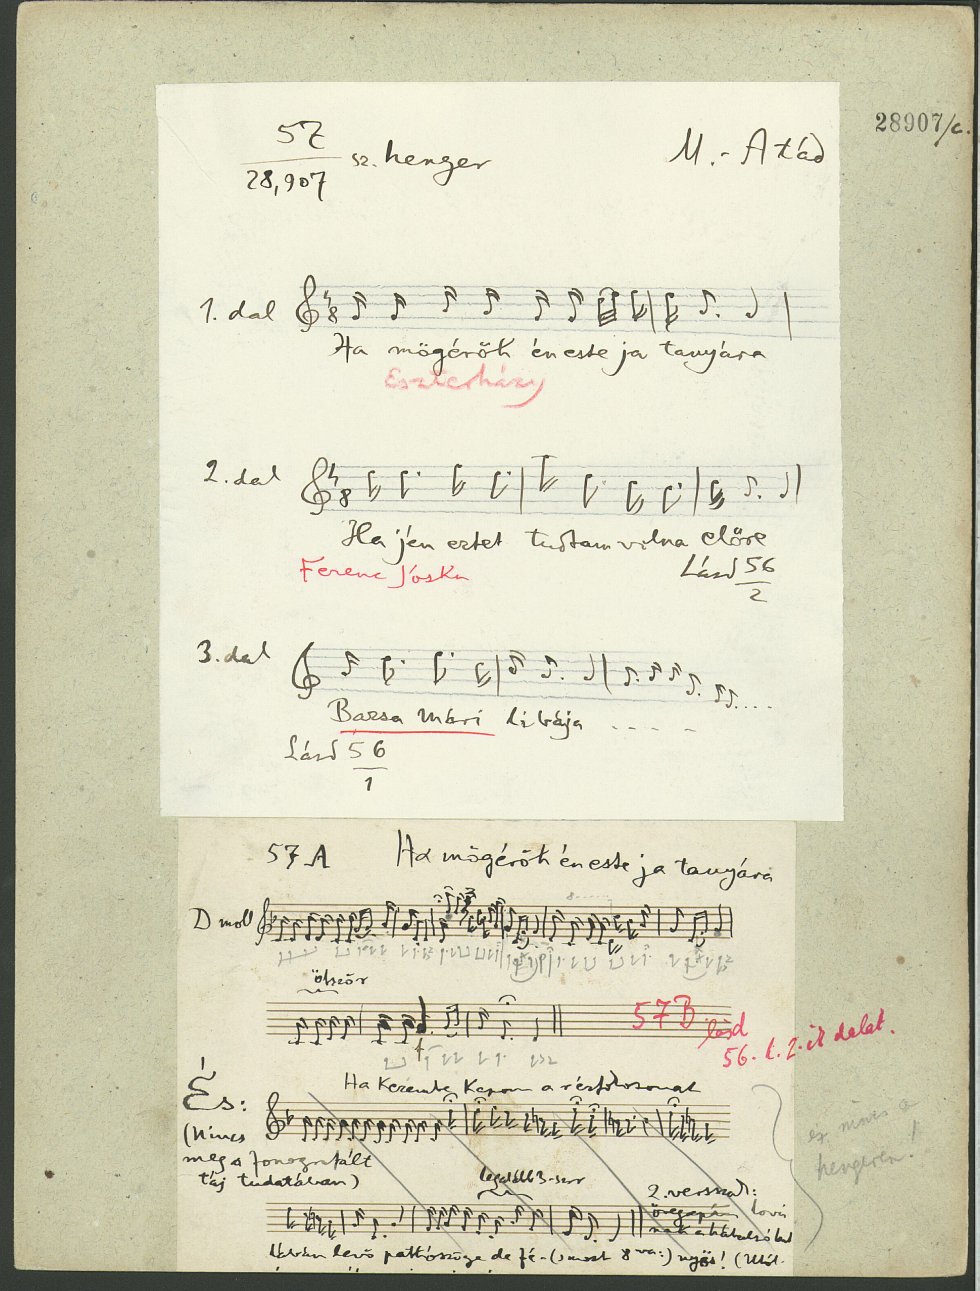 28907/c.
57
28,907 sz. henger M.-Atád
1. dal
Ha mögérők én este ja tanyára
Eszterházy
2. dal
Ha jén eztet tudtam vilna előre
Ferenc Jóska Lásd 56
2
3. dal
Barsa Mári libája . . . .
Lásd 56
1
57 A Ha mögérők én este ja tanyára
D moll
ötször
57 B lásd
56. l. 2. ik dalat.
Ha kezembe kapom a rézfokosomat
És:
(Nincs
meg a fonografált
táj tudatában)
legalább 3-szor
2. versszak:
öregapám lová
nak a hátulsó lá
lábán levő patkószöge de fé-(s most 8va:) nyös!
ez nincs a
hengeren!